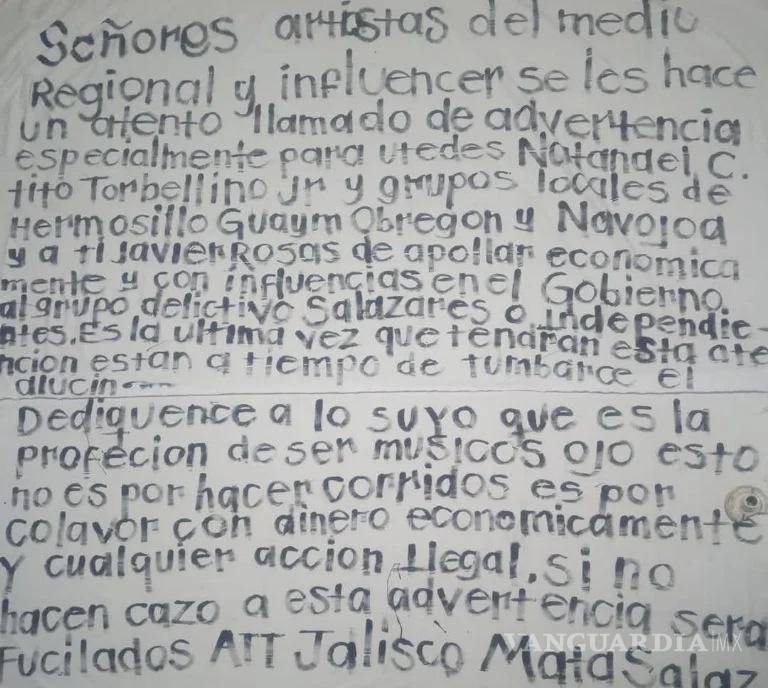 Señores artistas del medio
Regional y influencer se les hace
un atento llamado de advertencia
especialmente para utedes Natanael C.
tito Torbellino Jr y grupos locales de
Hermosillo Guaym Obregon y Navojoa
y a ti Javier Rosas de apollar economica
mente y con influencias en el Gobierno.
al grupo delictivo Salazares o independie-
ntes. Es la ultima vez que tendran esta ate
ncion estan a tiempo de tumbarce el
alucin
Dediquence a lo suyo que es la
profecion de ser musicos ojo esto
no es por hacer corridos es por
colavor con dinero economicamente
y cualquier accion Ilegal. si no
hacen cazo a esta advertencia sera
Fucilados ATT Jalisco Mata Salaz
VANGUARDIA|MX